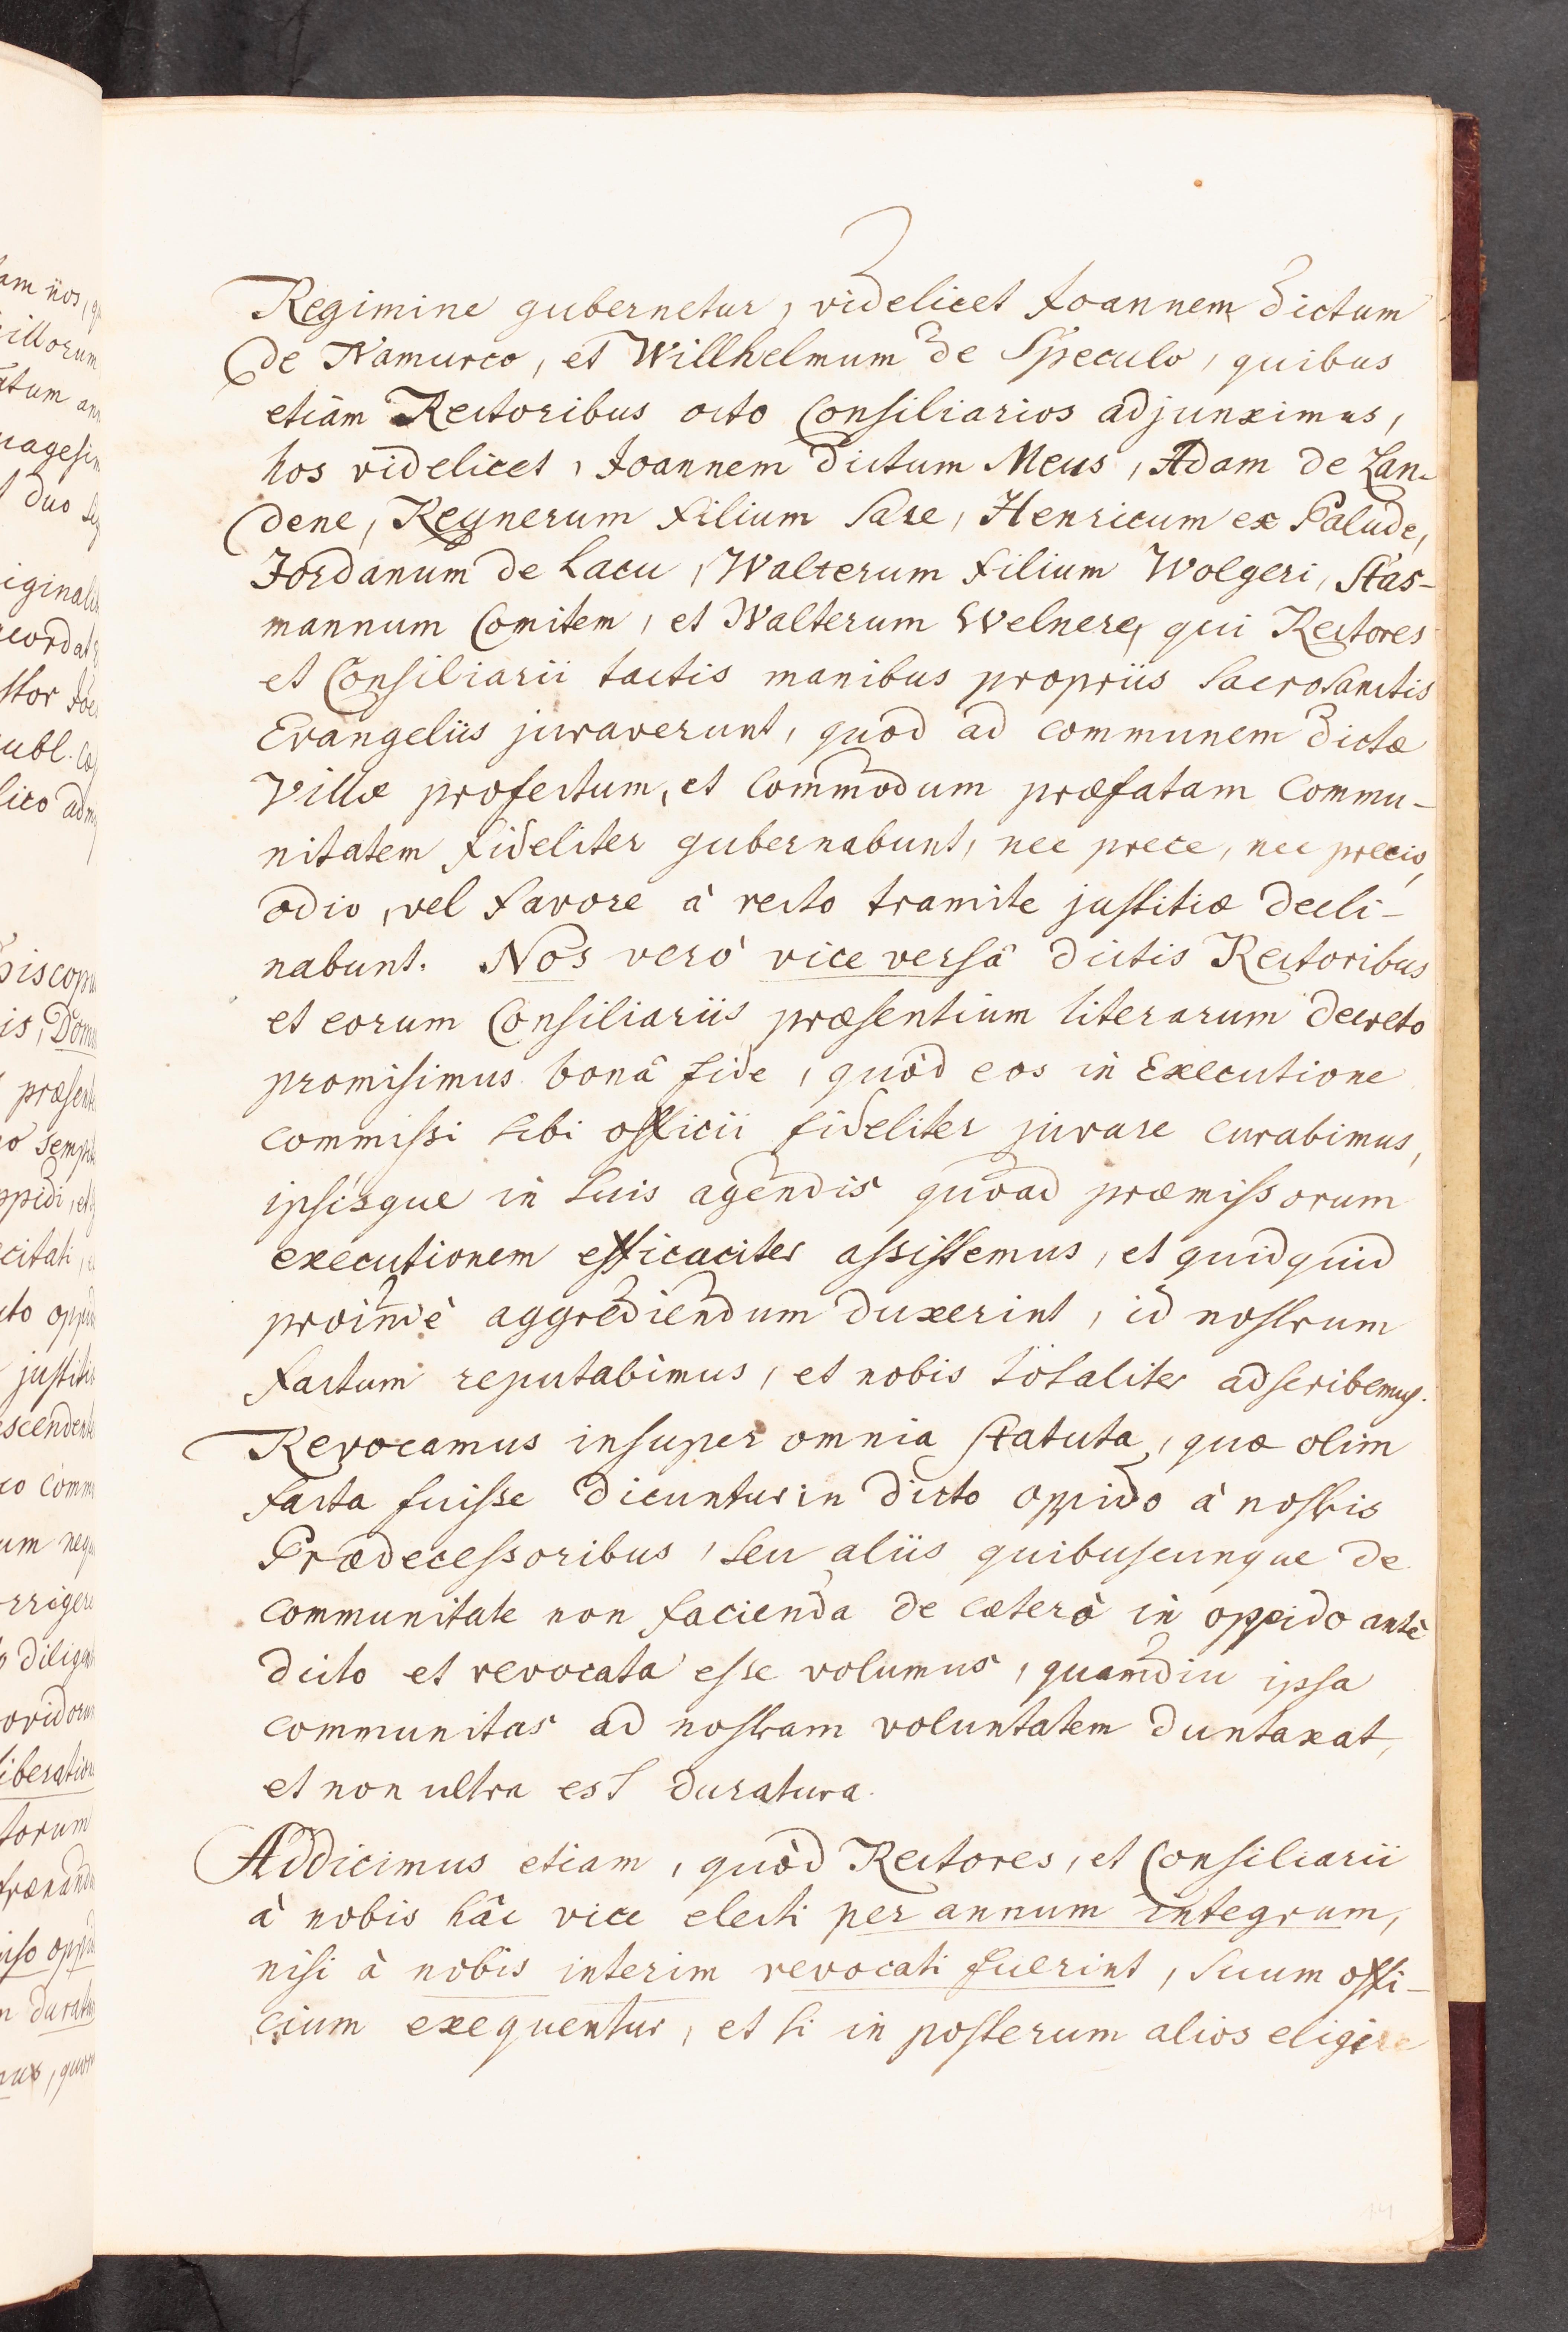 Regimine gubernetur, videlicet Joannem dictum
de Namurco, et Willhelmum de Speculo, quibus
etiâm Rectoribus octo Consiliarios adjunximus,
hos videlicet, Joannem dictum Meus, Adam de Lan-
dene, Reynerum filium Sare, Henricum ex Palude,
Jordanum de Lacu, Walterum filium Wolgeri, Stas-
mannum Comitem, et Walterum Welnere, qui Rectores
et Consiliarii tactis manibus propriis Sacrosanctis
Evangeliis juraverunt, quod ad communem dictæ
Villæ profectum, et Commodum præfatam Commu-
nitatem fideliter gubernabunt, nec prece, nec precio,
odio, vel favore à recto tramite justitiæ decli-
nabunt. Nos verò vice versâ dictis Rectoribus
et eorum Consiliariis præsentium literarum decreto
promisimus bonâ fide, quòd eos in Executione
commissi sibi officii fideliter jurare curabimus,
ipsisque in suis agendis quoad præmissorum
executionem efficaciter assistemus, et quidquid
proindè aggrediendum duxerint, id nostrum
factum reputabimus, et nobis totaliter adscribemus.
Revocamus insuper omnia Statuta, quæ olim
facta fuisse dicuntur in dicto oppido à nostris
Prædecessoribus, seu aliis quibuscunque de
communitate non facienda de cæterò in oppido antè
dicto et revocata esse volumus, quamdiu ipsa
communitas ad nostram voluntatem duntaxat,
et non ultra est duratura.
Addicimus etiam, quòd Rectores, et Consiliarii
à nobis hâc vice electi per annum integrum,
nisi à nobis interim revocati fuerint, suum offi-
cium exequentur, et si in posterum alios eligere